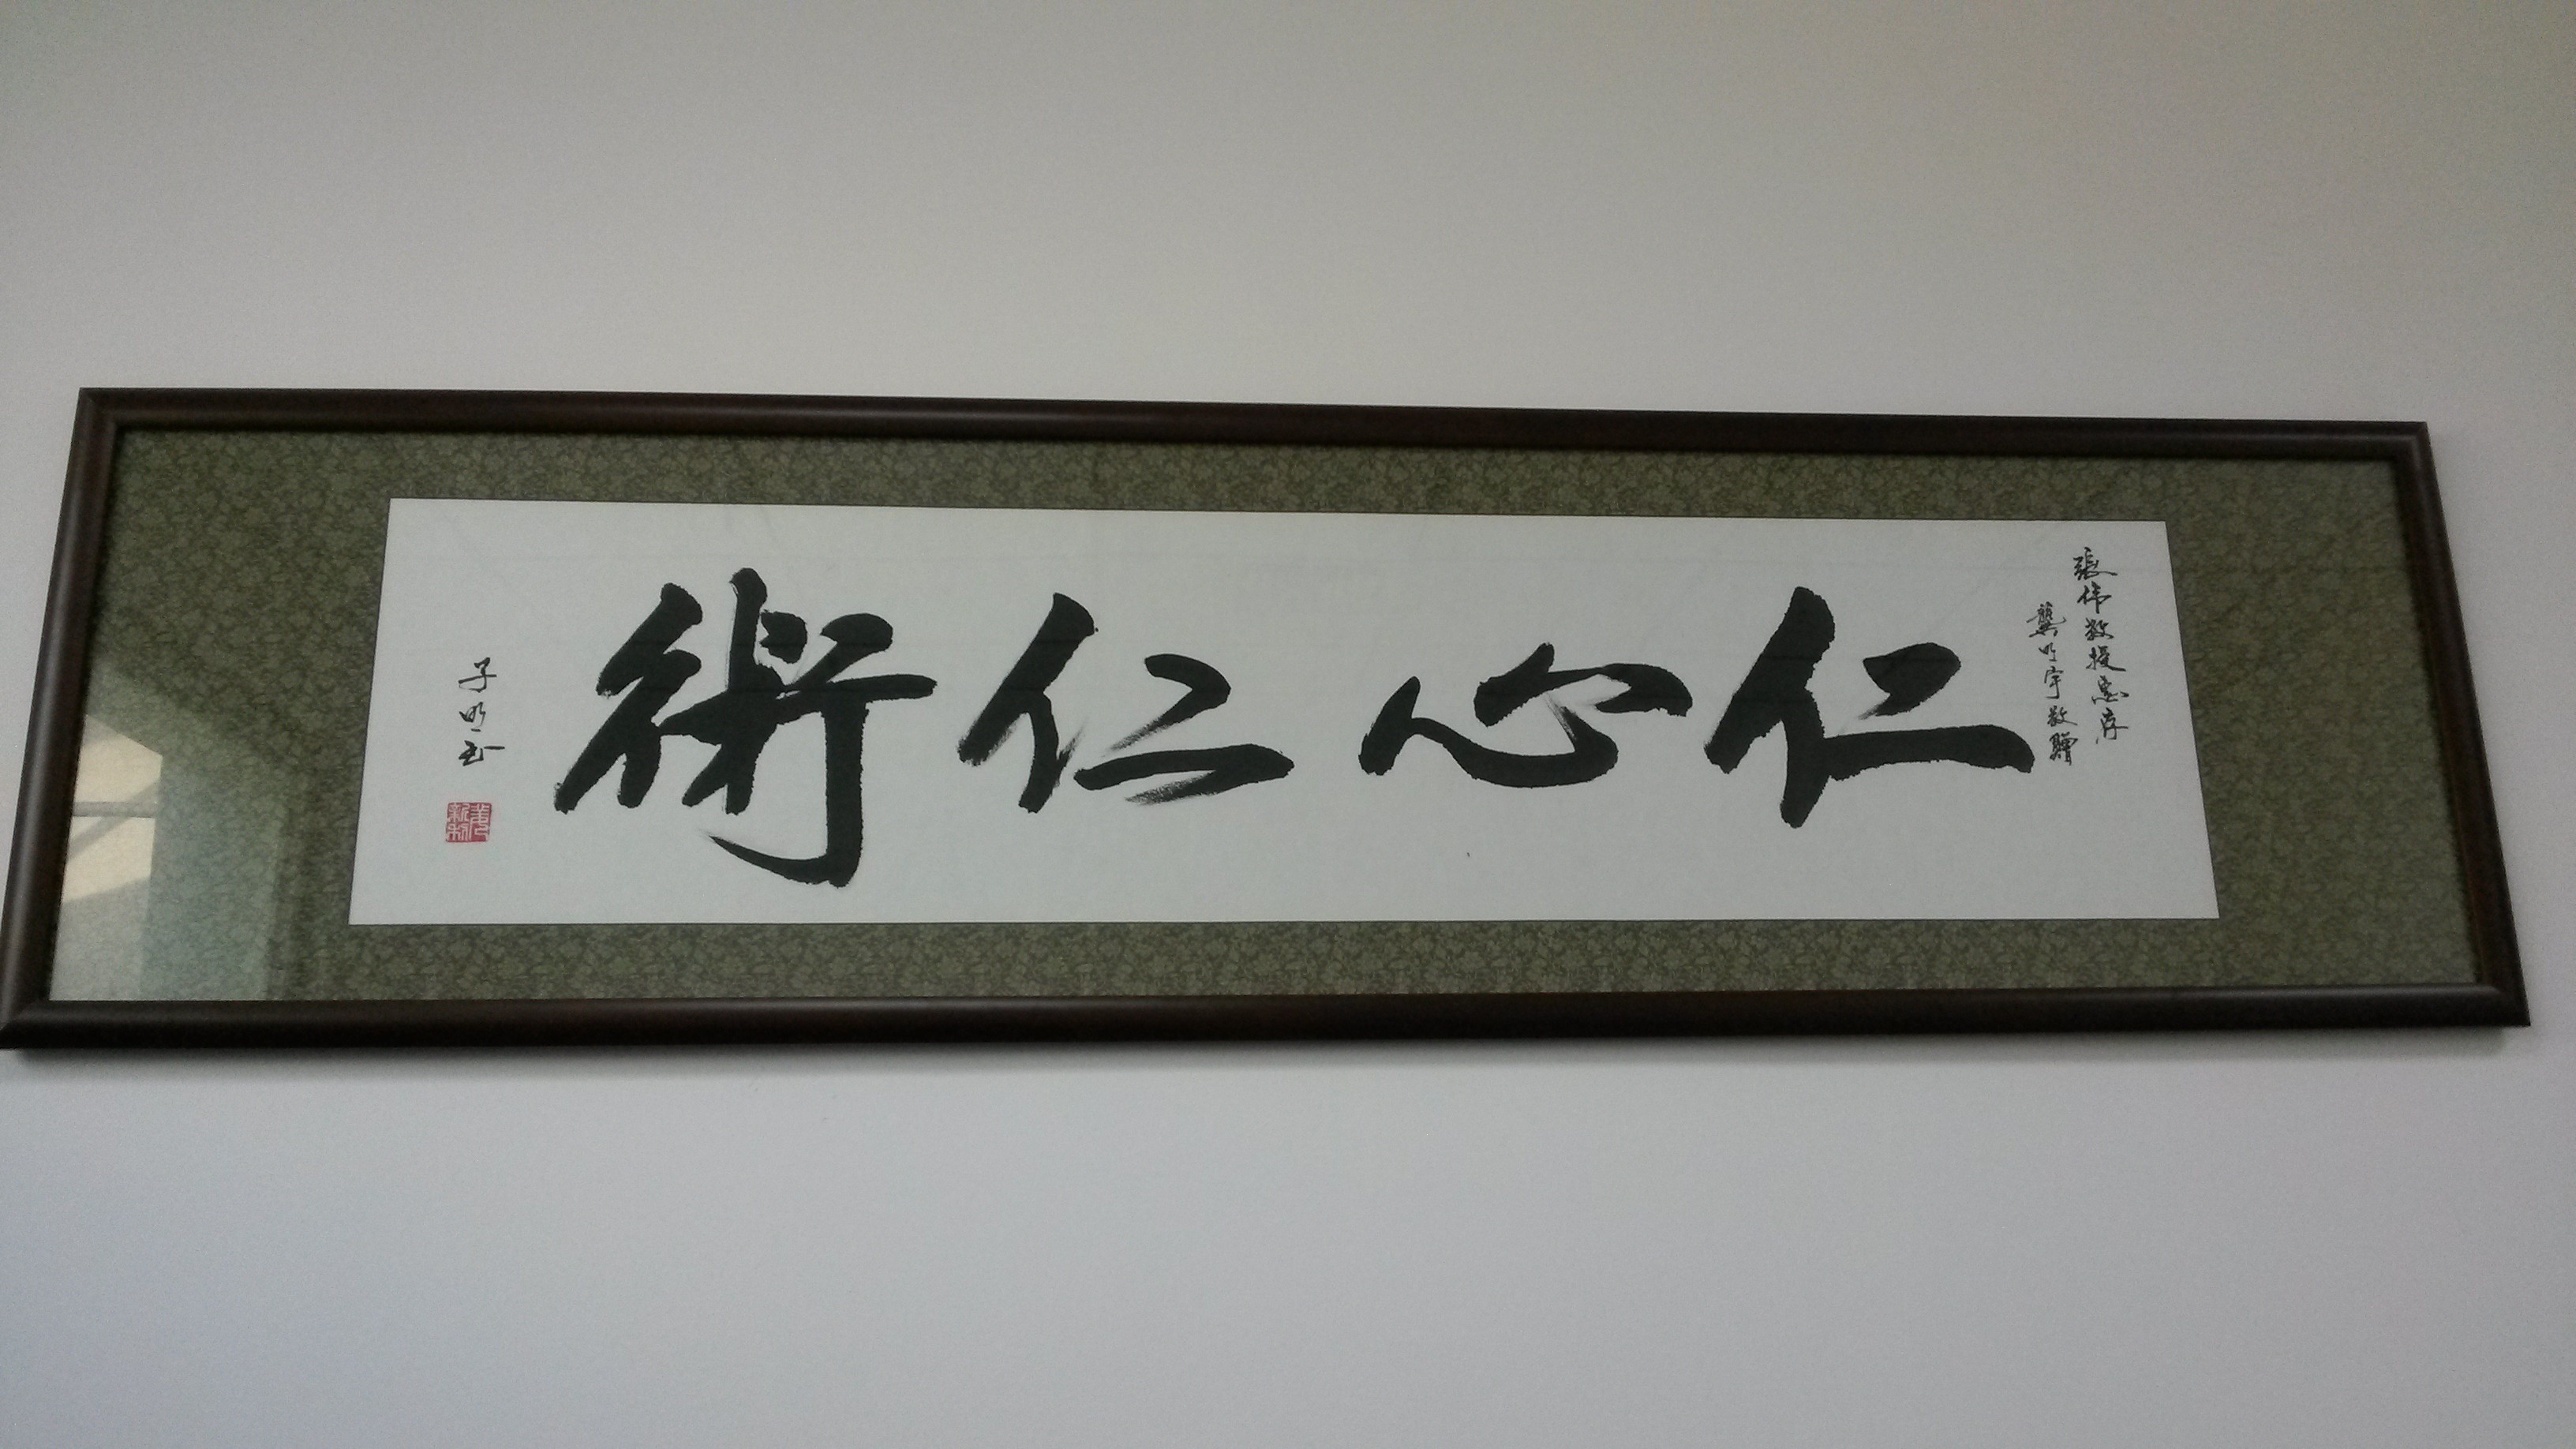 張伟教授惠存
龔明宇敬贈
仁心仁術
子明書